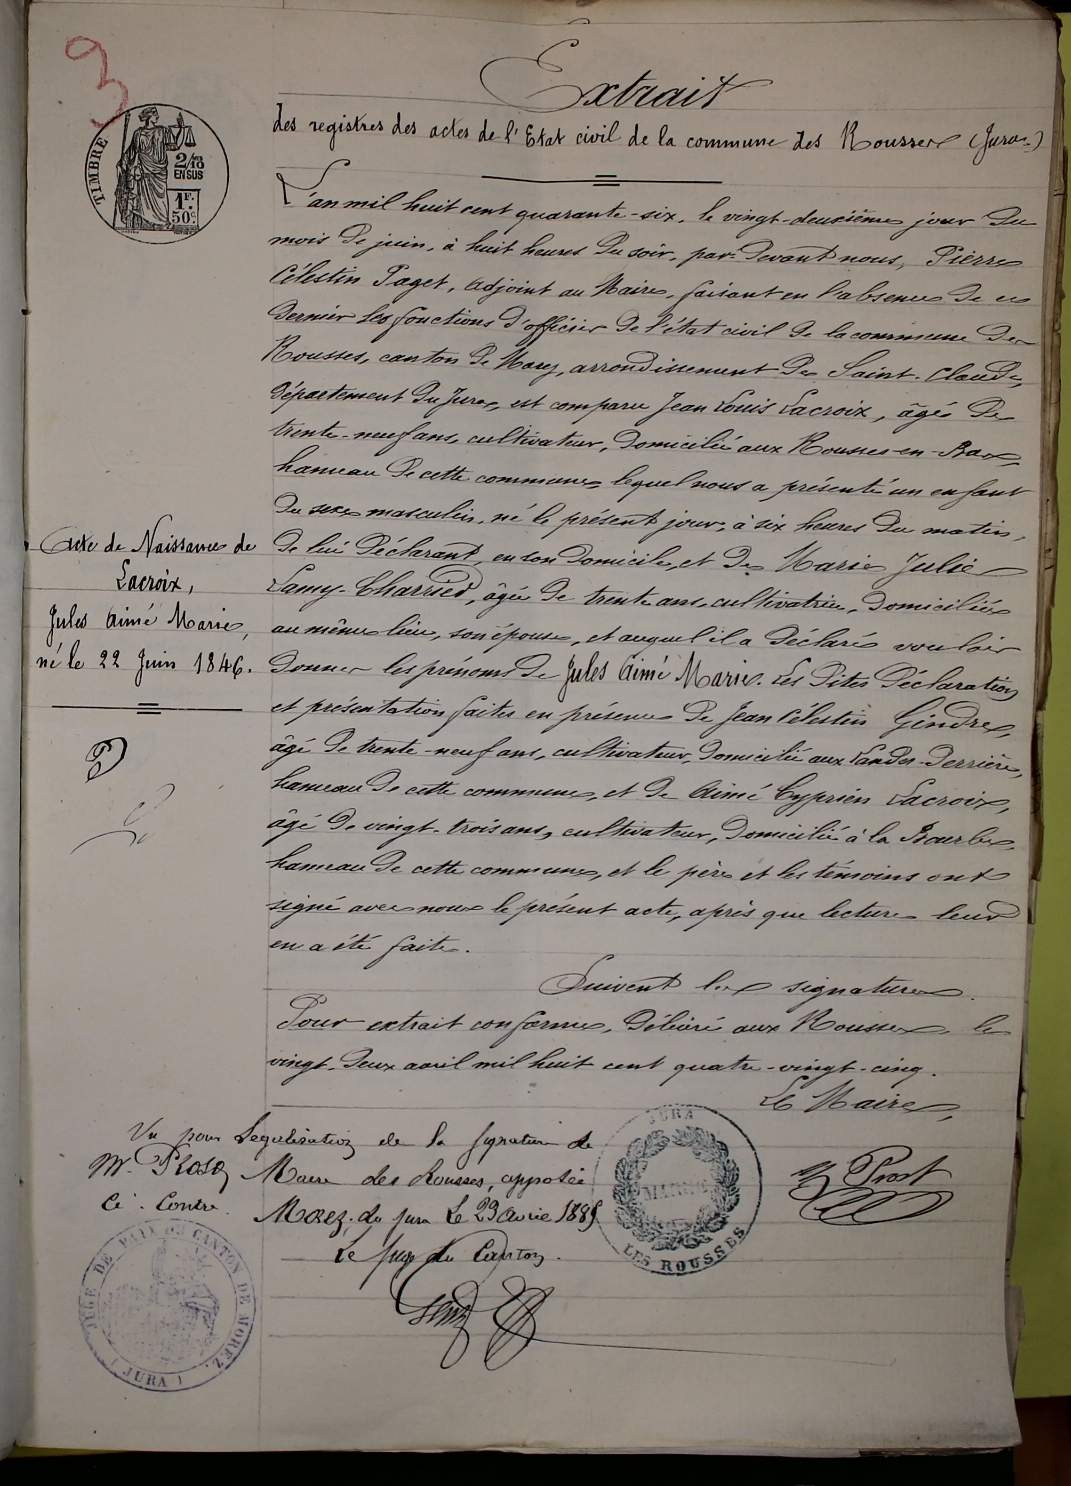 3
Extrait
des registres des actes de l'Etat civil de la commune des Rousses (Jura)
TIMBRE
2/10
EN SUS
1F.
50c.
L'an mil huit cent quarante-six, le vingt-deuxième jour du
mois de juin, à huit heures du soir, par-devant nous, Pierre
Célestin Paget, adjoint au Maire, faisant en l'absence de ce
dernier les fonctions d'officier de l'état civil de la commune des
Rousses, canton de Morez, arrondissement de Saint-Claude,
département du Jura, est comparu Jean Louis Lacroix, âgé de
trente-neuf ans, cultivateur, domicilié aux Rousses-en-Bas,
hameau de cette commune, lequel nous a présenté un enfant
du sexe masculin, né le présent jour, à six heures du matin,
de lui déclarant, en son domicile, et de Marie Julie
Lamy-Charrier, âgée de trente ans, cultivatrice, domiciliée
au même lieu, son épouse, et auquel il a déclaré vouloir
donner les prénoms de Jules Aimé Marie. Les dites déclaration
et présentation faites en présence de Jean Célestin Gindre,
âgé de trente-neuf ans, cultivateur, domicilié aux Landes-Derrière,
hameau de cette commune, et de Aimé Cyprien Lacroix,
âgé de vingt-trois ans, cultivateur, domicilié à la Bourbe,
hameau de cette commune, et le père et les témoins ont
signé avec nous le présent acte, après que lecture leur
en a été faite.
Acte de Naissance de
Lacroix,
Jules Aimé Marie,
né le 22 Juin 1846.
Suivent les signatures.
Pour extrait conforme, délivré aux Rousses, le
vingt-deux avril mil huit cent quatre-vingt-cinq.
Le Maire,
Prost
Vu pour légalisation de la signature de
Mr. Prost Maire des Rousses, apposée
Ci-Contre.
Morez du Jura le 23 Avril 1885
Le Juge du Canton.
JURA
MAIRIE
LES ROUSSES
JUGE DE PAIX DU CANTON DE MOREZ.
(JURA)